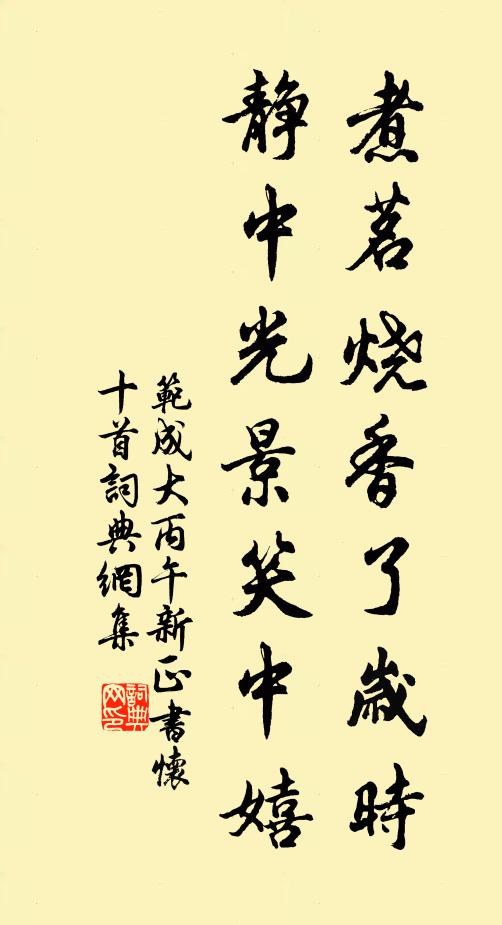 煮茗烧香了歲時
静中光景笑中嬉
範成大丙午新正書懷
十首詞典網集
詞典
网印